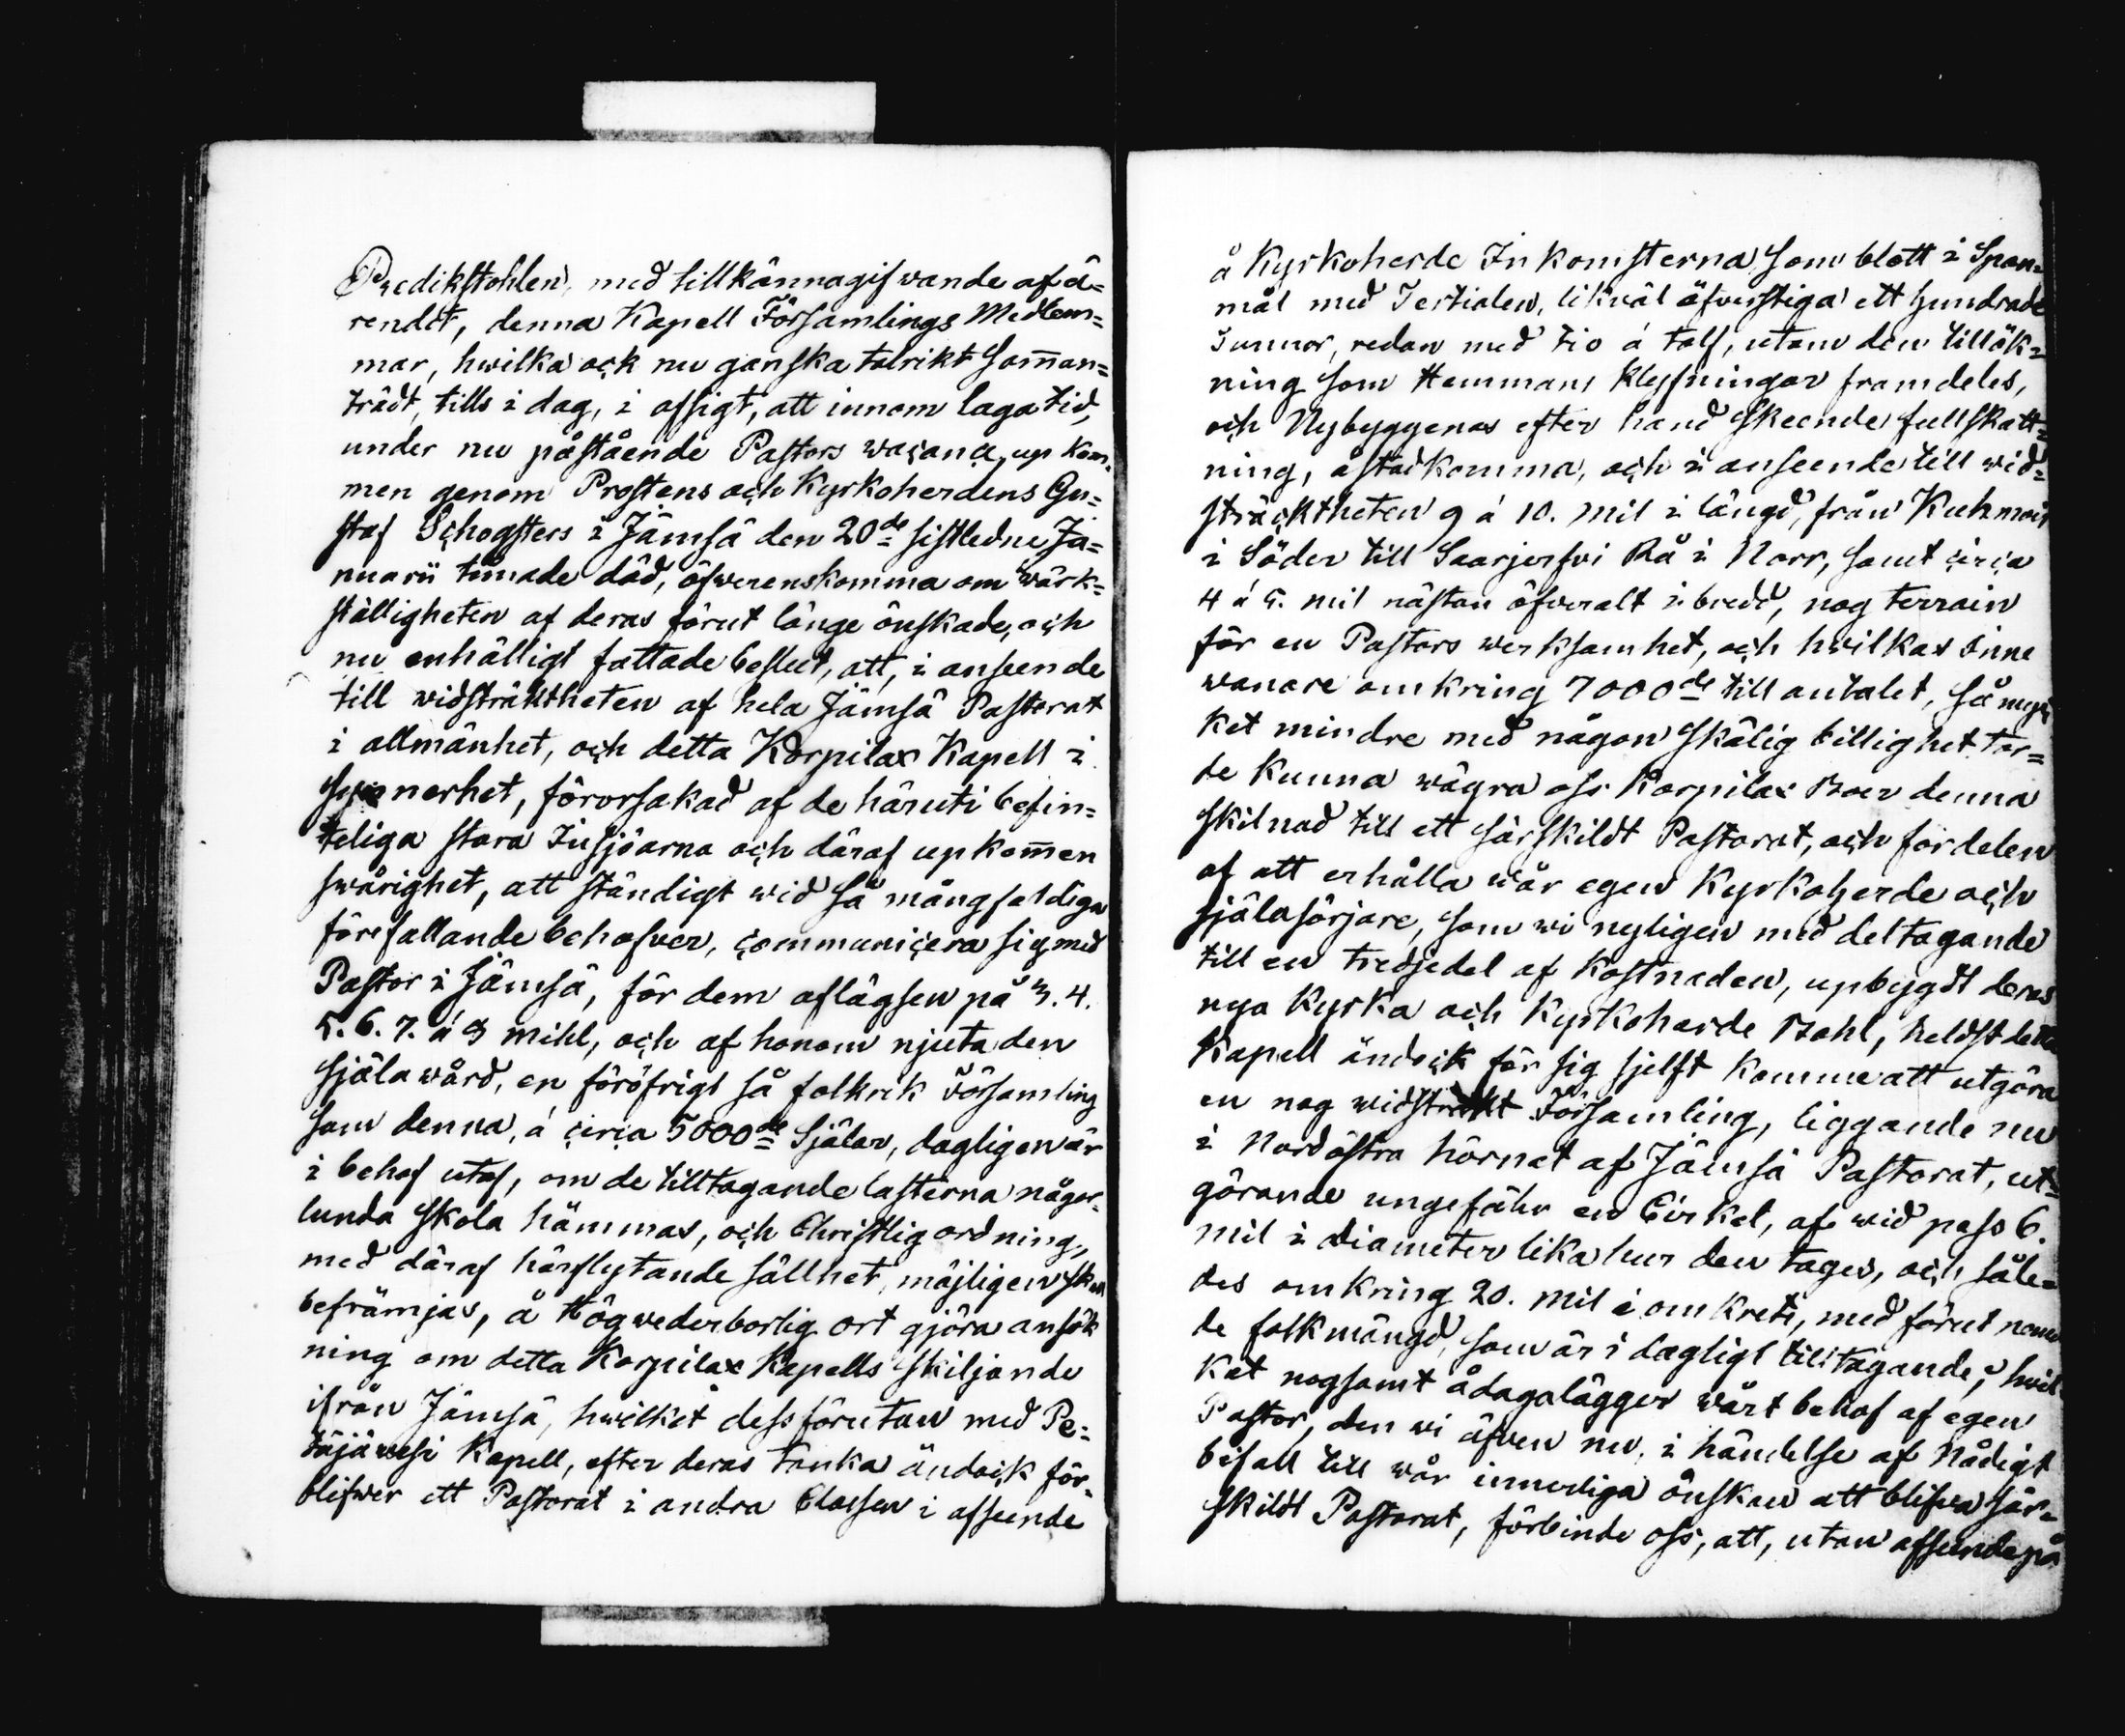 Predikstohlen, med tillkännagifwande af ä=
rendet, denna Kapell Församlings Medlem=
mar, hwilka ock nu ganska talrikt som̄an=
trädt, tills i dag, i afsigt, att innom laga tid,
under nu påstående Pastors wacance, up kom=
men genom Prostens och Kyrkoherdens Gu=
staf Schogsters i Jämsä den 20de sistledne Ja=
nuarii timade död, öfwerenskomma om wärk=
ställigheten af deras förut länge önskade, och
nu enhälligt fattade beslut, att, i anseende
till widsträcktheten af hela Jämsä Pastorat
i allmänhet, och detta Korpilax Kapell i
synnerhet, förorsakad af de häruti befin=
teliga stora Insjöarna och däraf upkom̄en
swårighet, att ständigt wid så mångfaldiga
förefallande behofver, communicera sig med
Pastor i Jämsä, för dem aflägsen på 3. 4.
5. 6. 7. á 8 mihl, och af honom njuta den
själawård, en föröfrigt så folkrik Församling
som denna, á circa 5000de Själar, dagligen är
i behof utaf, om de tilltagande lasterna någor=
lunda skola hämmas, och Christlig ordning,
med däraf härflytande sällhet, möjligen skall
befrämjas, å Högwederborlig ort gjöra ansök
ning om detta Korpilax Kapells skiljande
ifrån Jämsä, hwilket dessförutan med Pe=
täjäwesi Kapell, efter deras tanka ändock för=
blifwer ett Pastorat i andra Classen i afseende
å Kyrkoherde Inkomsterna som blott i Span=
mål med Tertialen, likväl äfverstiga ett hundrade
Tunnor, redan med tio á tolf, utom den tillök=
ning som Hemmans klyfningar framdeles,
och Nybyggenas efter hand skeende fullskatt=
ning, åstadkomma, och i anseende till wid=
sträcktheten 9 á 10. mil i längd, från Kuhmois
i Söder till Saarjerfvi Rå i Norr, samt circa
4 á 5. mil nästan öfveralt i bredd, nog terrain
för en Pastors werksamhet, och hvilkas inne
wanare omkring 7000de till antalet, så myc
ket mindre med någon skälig billighet tor=
de kunna wägra oss Korpilax Boer denna
skilnad till ett särskildt Pastorat, och fördelen
af att erhålla wår egen Kyrkoherde och
själasörjare, som wi nyligen med deltagande
till en tredjedel af kostnaden, upbygdt deras
nya Kyrka och Kyrkoherde Bohl, heldst detta
Kapell ändock för sig sjelft komme att utgöra
en nog widsträkt Församling, liggande nu
i Nordöstra hörnet af Jämsä Pastorat, ut=
görande ungefähr en Cirkel, af wid pass 6.
mil i diameter lika hur den tages, och såle=
des omkring 20. mil i omkrets, med förut nemn
de folkmängd, som är i dagligt tilltagande; hvil
ket nogsamt ådagalägger wårt behof af egen
Pastor, den wi äfven nu, i händelse af Nådigt
bifall till wår innerliga önskan att blifwa sär=
skildt Pastorat, förbinde oss, att, utan afseende på